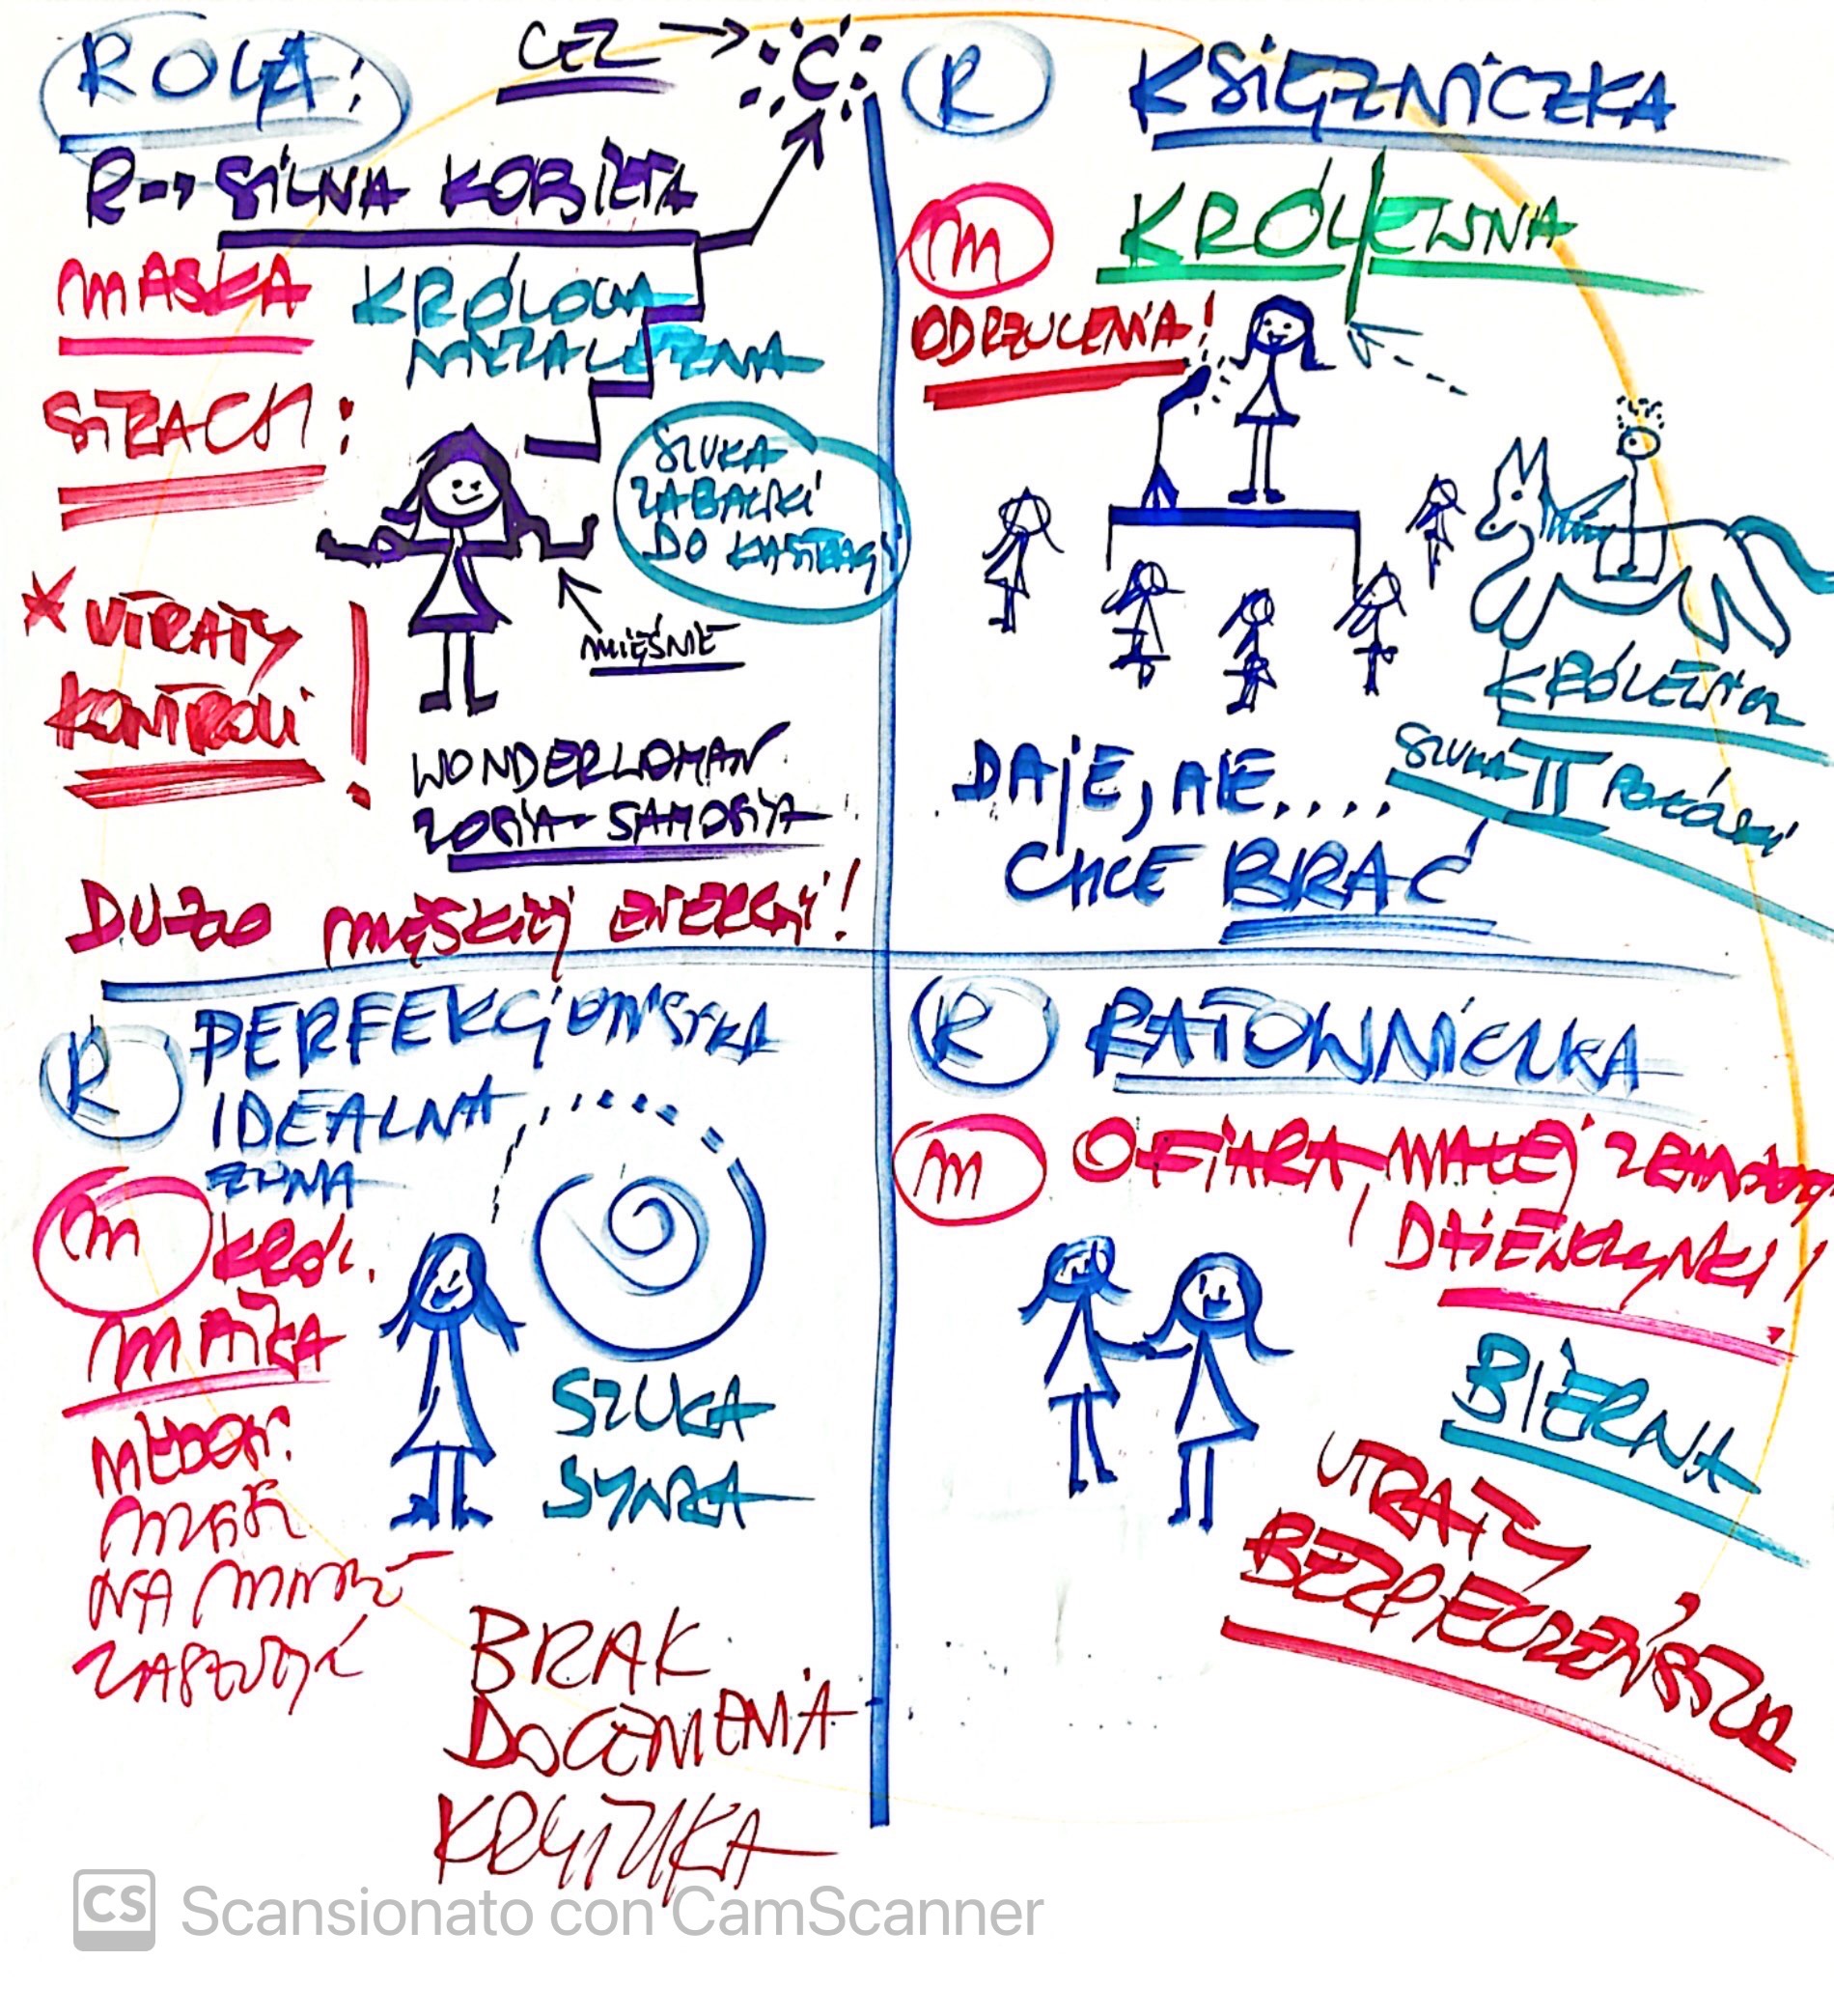 ROLA:
CEL → C
R → SILNA KOBIETA
MASKA
KRÓLOWA
NIEZALEŻNA
STRACH:
SZUKA
ZABAWKI
DO KASTRACJI
* UTRATY
KONTROLI !
MIĘŚNIE
WONDERWOMAN
ZOSIA-SAMOSIA
DUŻO MĘSKIEJ ENERGII!
R KSIĘŻNICZKA
M KRÓLEWNA
ODRZUCENIA!
KRÓLEWNA
SZUKA II POŁÓWKI
DAJE, ALE....
CHCE BRAĆ
R PERFEKCJONISTKA
IDEALNA
ŻONA
M KRÓL.
MATKA
SZUKA
SYNKA
NA
BRAK
DOCENIENIA
KRYTYKA
R RATOWNICZKA
M OFIARA, MAŁEJ
DZIEWCZYNKI!
BIERNA
UTRATY
BEZPIECZEŃSTWA
CS Scansionato con CamScanner